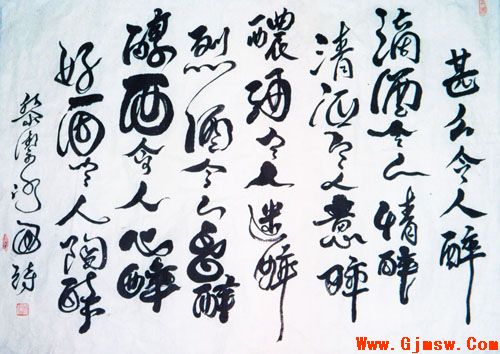 甚么令人醉
滴酒令人情醉
清酒令人意醉
醲酒令人迷醉
烈酒令人昏醉
醇酒令人心醉
好酒令人陶醉
Www.Gjmsw.Com